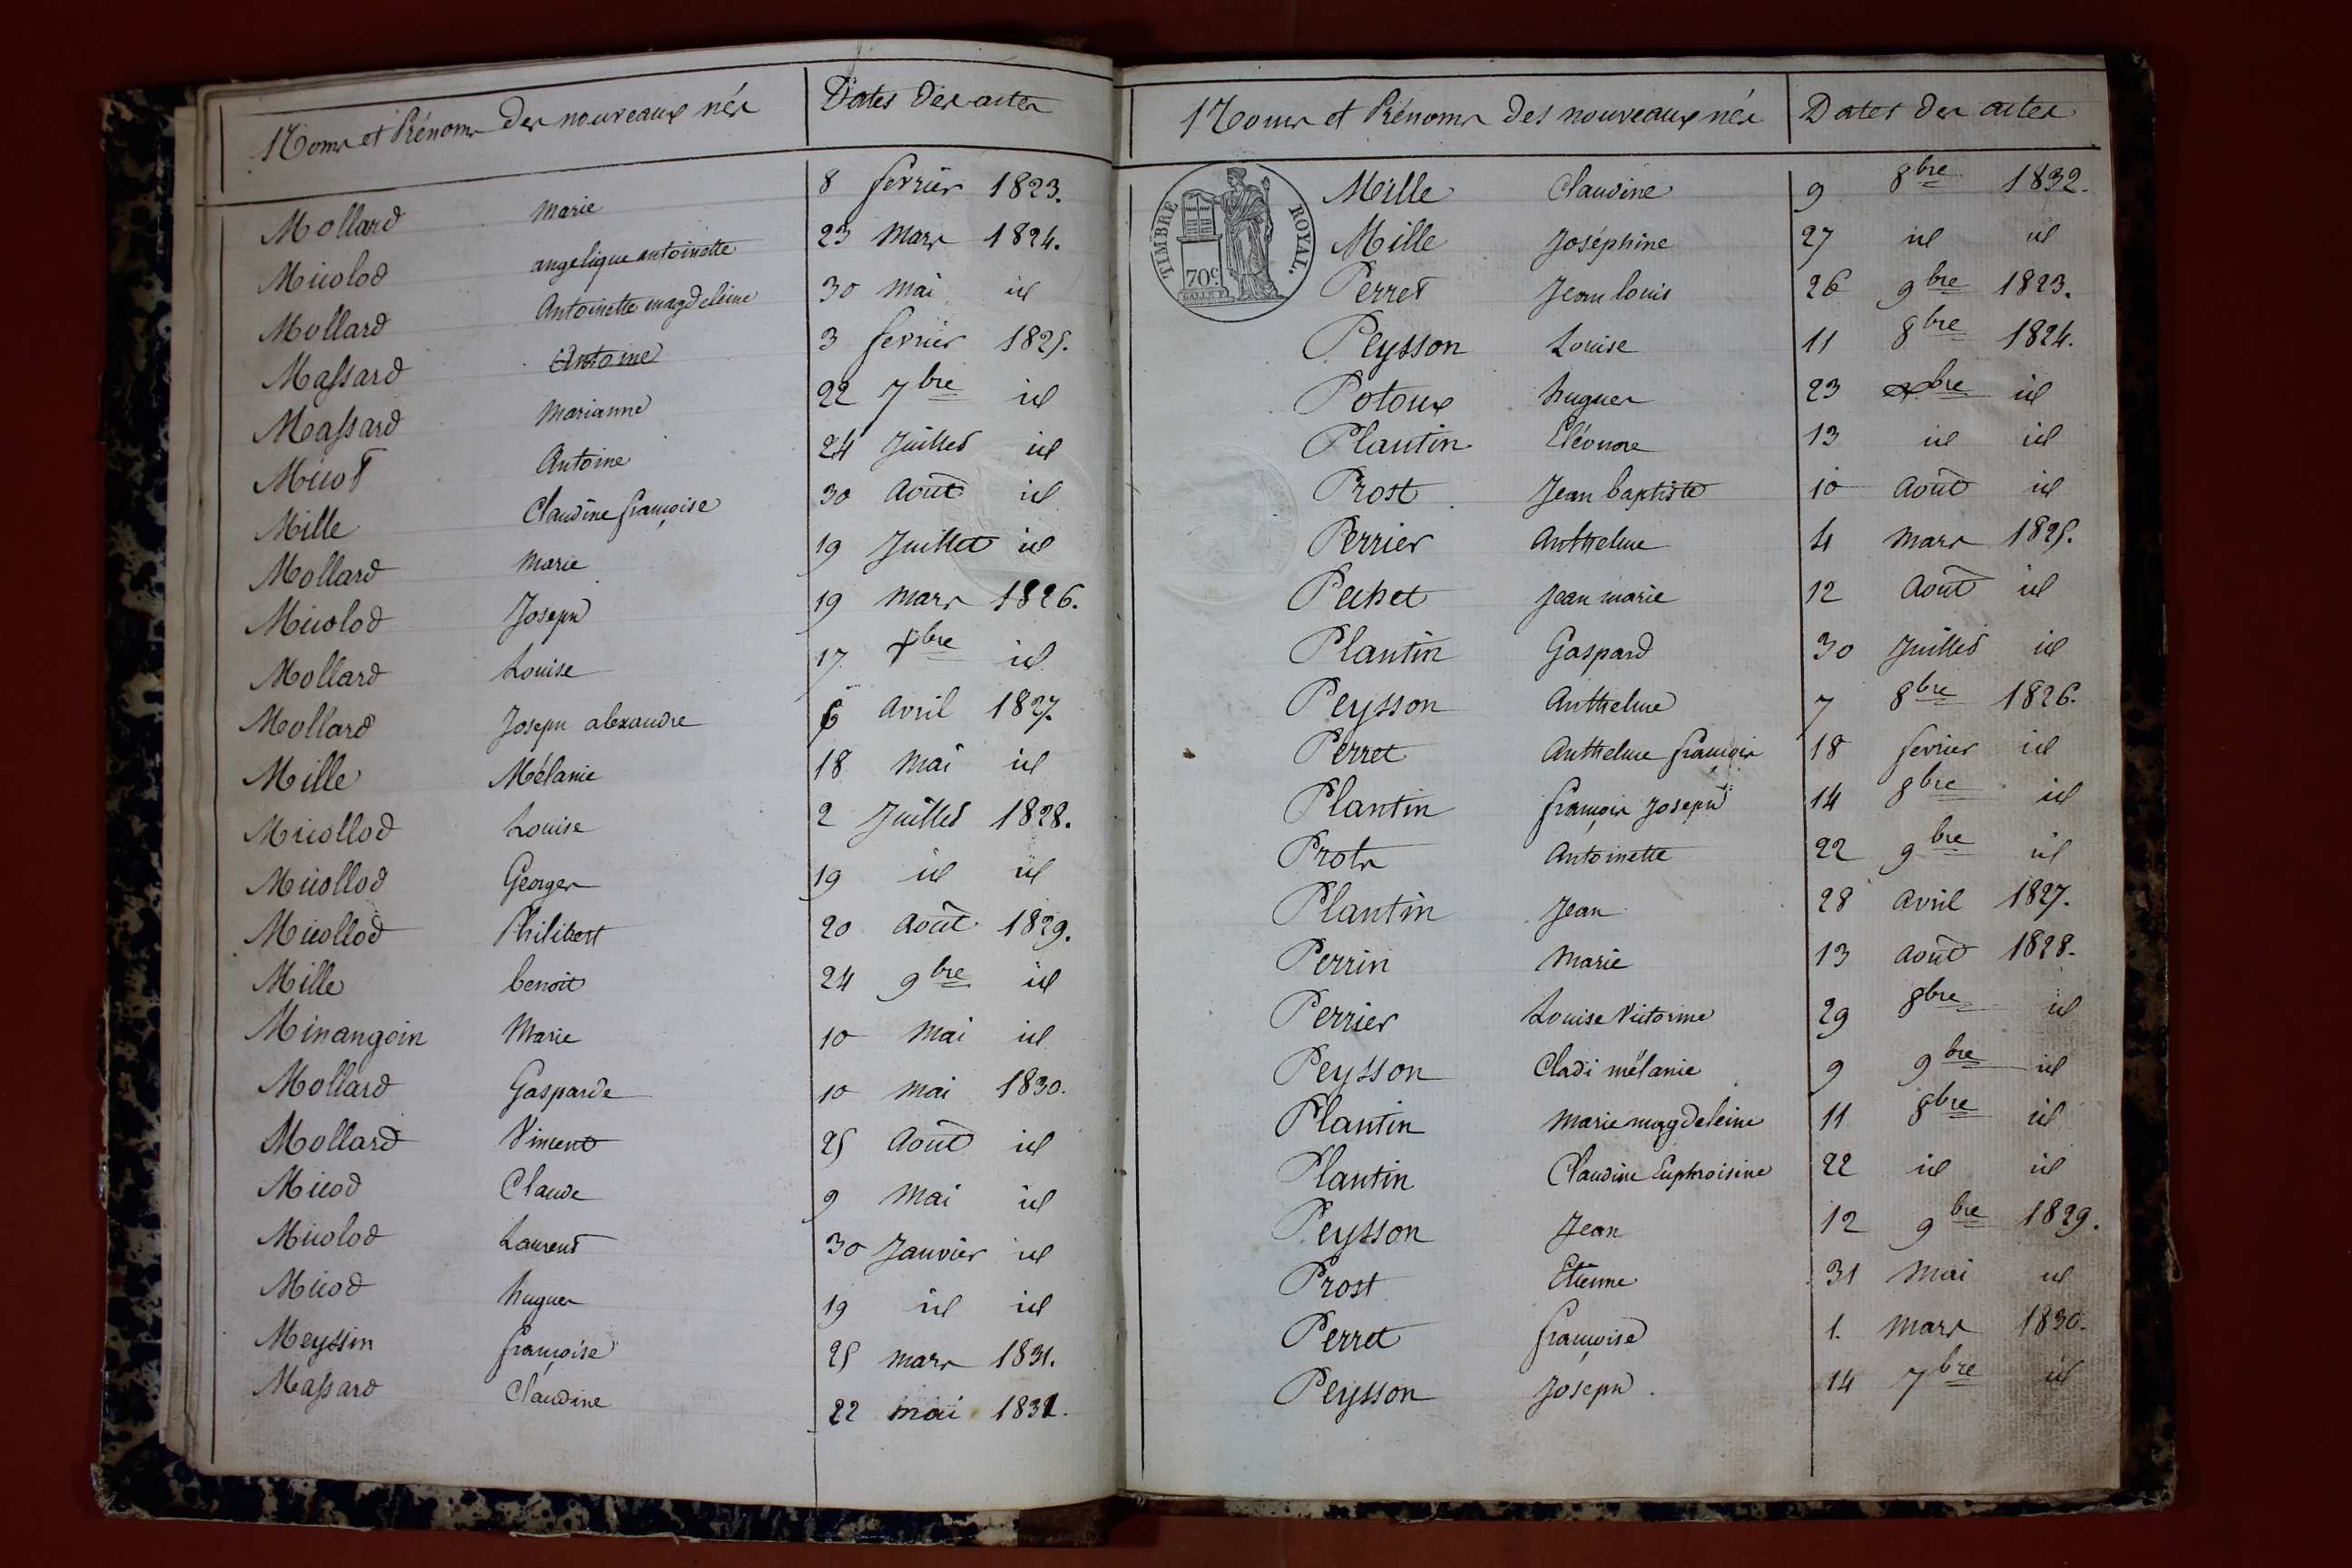 Noms et Prénoms des nouveaux nés Dates des actes
Mollard marie 8 fevrier 1823.
Micolod angelique antoinette 23 Mars 1824.
Mollard Antoinette magdeleine 30 Mai id
Massard Antoine 3 fevrier 1825.
Massard Marianne 22 7bre id
Micot Antoine 24 Juillet id
Mille Claudine françoise 30 Août id
Mollard Marie 19 Juillet id
Micolod Joseph 19 Mars 1826.
Mollard Louise 17 id
Mollard Joseph alexandre 6 Avril 1827.
Mille Mélanie 18 Mai id
Micollod Louise 2 Juillet 1828.
Micollod Georges 19 id id
Micollod Philibert 20 Août 1829.
Mille benoit 24 9bre id
Minangoin Marie 10 Mai id
Mollard Gasparde 10 Mai 1830.
Mollard Vincent 25 Août id
Micod Claude 9 Mai id
Micolod Laurent 30 Janvier id
Micod hugues 19 id id
Meyssin françoise 25 mars 1831.
Massard Claudine 22 mai 1831.
Noms et Prénoms des nouveaux nés Dates des actes
TIMBRE ROYAL.
70c.
Mille Claudine 9 8bre 1832.
Mille Joséphine 27 id id
Perret Jean louis 26 9bre 1823.
Peysson Louise 11 8bre 1824.
Potoux hugues 23 xbre id
Plantin Eléonore 13 id id
Prost Jean baptiste 10 Août id
Perrier Anthelme 4 Mars 1825.
Pechet Jean marie 12 Août id
Plantin Gaspard 30 Juillet id
Peysson Anthelme 7 8bre 1826.
Perret Anthelme françois 18 fevrier id
Plantin françois Joseph 14 8bre id
Prots Antoinette 22 9bre id
Plantin Jean 28 Avril 1827.
Perrin Marie 13 Août 1828.
Perrier Louise Victorine 29 8bre id
Peysson Cladi mélanie 9 9bre id
Plantin Marie magdeleine 11 8bre id
Plantin Claudine Euphroisine 22 id id
Peysson Jean 12 9bre 1829.
Prost Etienne 31 Mai id
Perret françoise 1. Mars 1830.
Peysson Joseph 14 7bre id